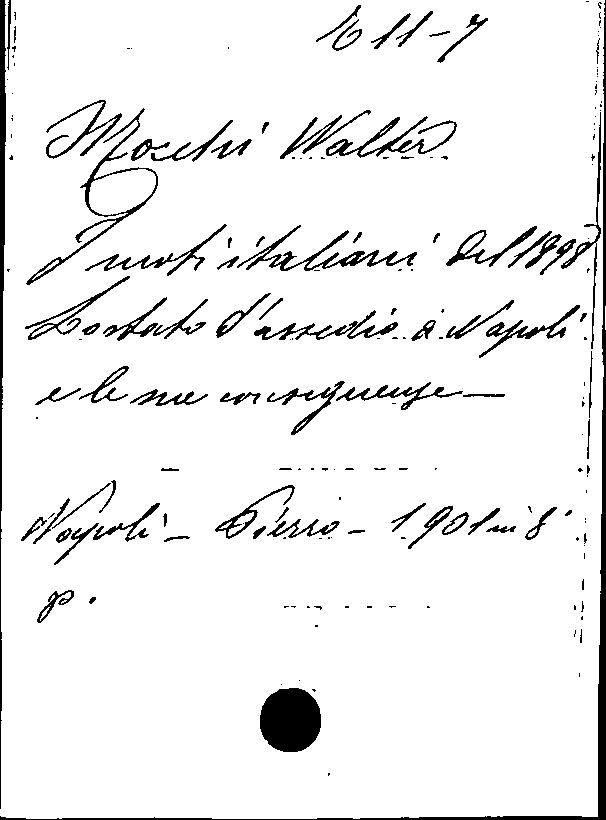 E 11-7
Mocchi Walter
I moti italiani del 1898
Lo stato d'assedio a Napoli
e le sue conseguenze —
Napoli - Pierro - 1901 in 8°
p.